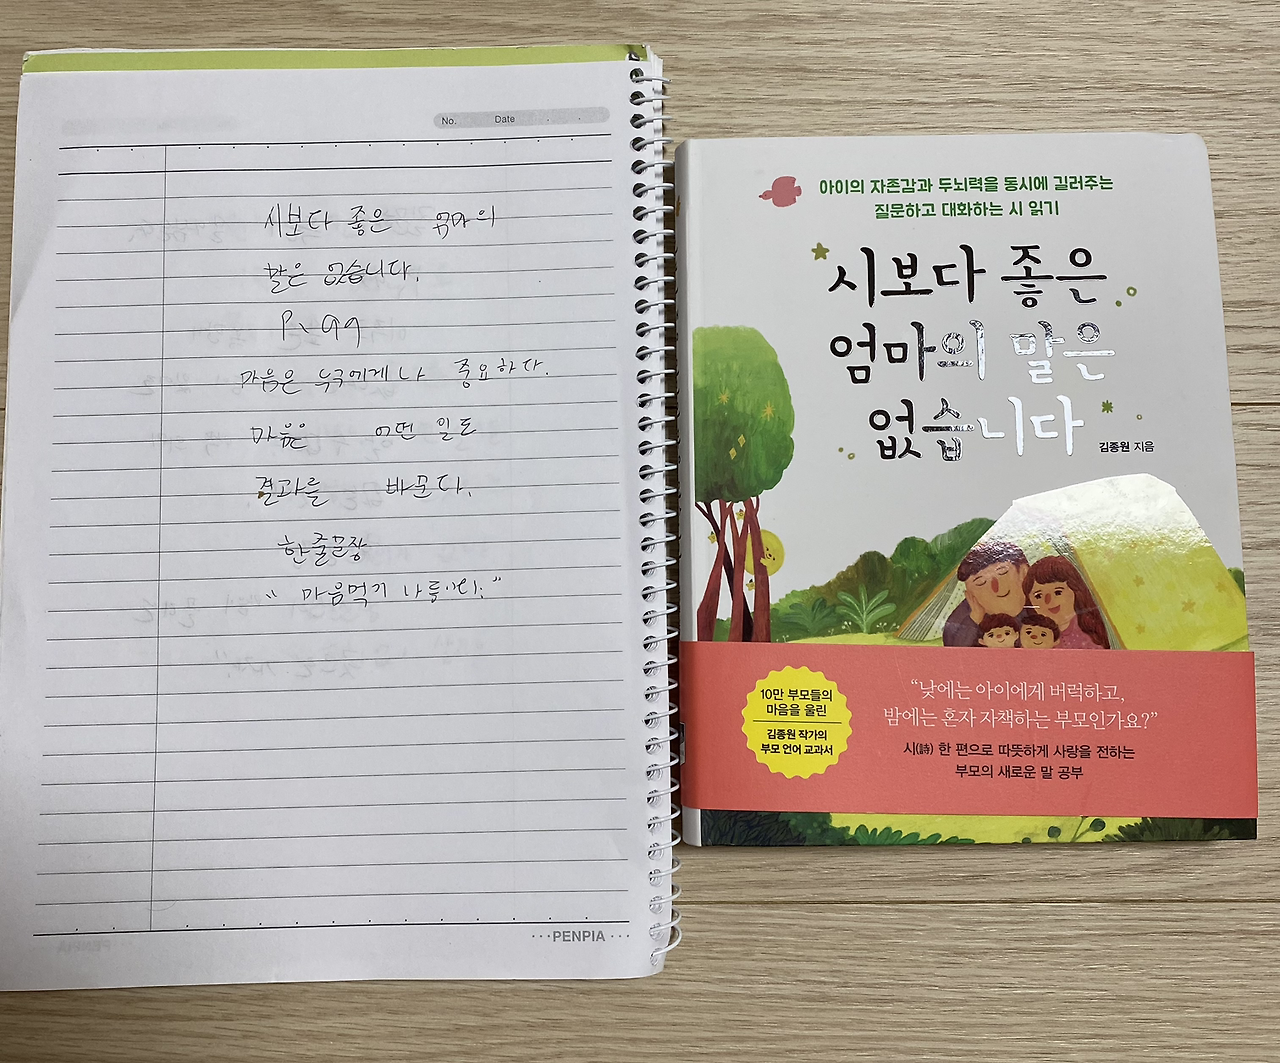 No. Date
시보다 좋은 엄마의
말은 없습니다.
마음은 누구에게나 중요하다.
마음은 어떤 일도
결과를 바꾼다.
한줄문장
" 마음먹기 나름
···PENPIA···
아이의 자존감과 두뇌력을 동시에 길러주는
질문하고 대화하는 시 읽기
시보다 좋은
엄마의 말은
없습니다
김종원 지음
10만 부모들의
마음을 울린
김종원 작가의
부모 언어 교과서
“낮에는 아이에게 버럭하고,
밤에는 혼자 자책하는 부모인가요?”
시(詩) 한 편으로 따뜻하게 사랑을 전하는
부모의 새로운 말 공부